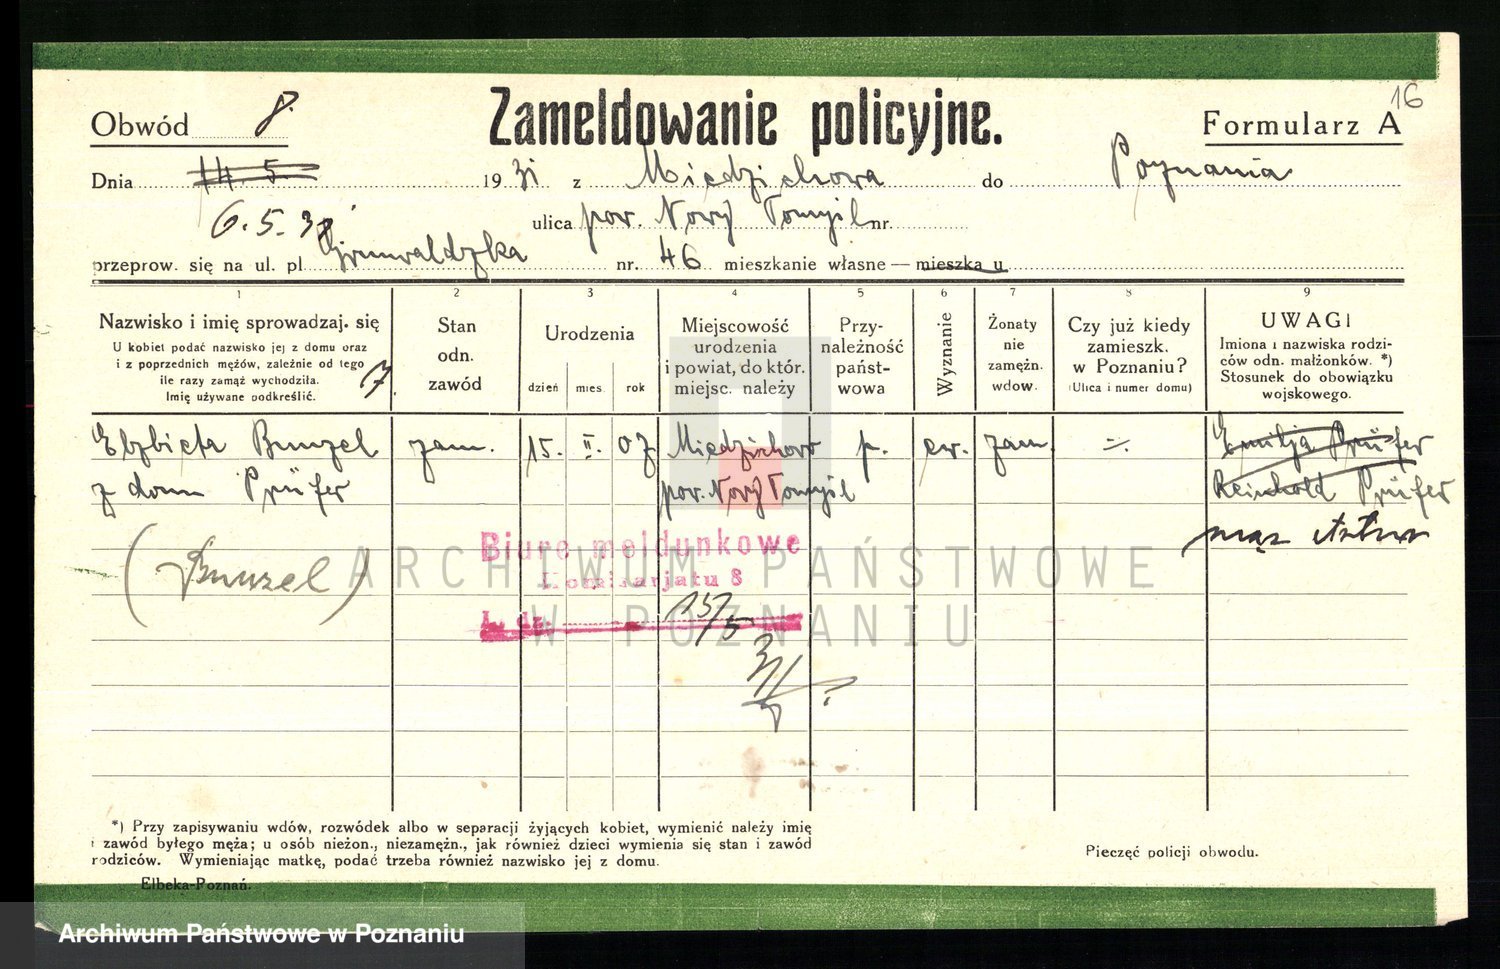 16
Obwód 8.
Zameldowanie policyjne.
Formularz A
Dnia 14. 5. 1931 z Miedzichowa do Poznania
6. 5. 31 ulica pow. Nowy Tomyśl nr.
przeprow. się na ul. pl. Grunwaldzka nr. 46 mieszkanie własne — mieszka u
1 2 3 4 5 6 7 8 9
Nazwisko i imię sprowadzaj. się
U kobiet podać nazwisko jej z domu oraz
i z poprzednich mężów, zależnie od tego
ile razy zamąż wychodziła.
Imię używane podkreślić.
Stan
odn.
zawód
Urodzenia
dzień mies. rok
Miejscowość
urodzenia
i powiat, do któr.
miejsc. należy
Przy-
należność
państ-
wowa
Wyznanie
Żonaty
nie
zamężn.
wdow.
Czy już kiedy
zamieszk.
w Poznaniu?
(Ulica i numer domu)
UWAGI
Imiona i nazwiska rodzi-
ców odn. małżonków. *)
Stosunek do obowiązku
wojskowego.
Elżbieta Bunzel zam. 15. II. 07 Miedzichowo p. ew. zam. Emilja Prüfer
z domu Prüfer pow. Nowy Tomyśl Reinhold Prüfer
mąż Artur
(Bunzel)
Biuro meldunkowe
Komisarjatu 8
L. dz.
ARCHIWUM PAŃSTWOWE
W POZNANIU
*) Przy zapisywaniu wdów, rozwódek albo w separacji żyjących kobiet, wymienić należy imię
i zawód byłego męża; u osób nieżon., niezamężn., jak również dzieci wymienia się stan i zawód
rodziców. Wymieniając matkę, podać trzeba również nazwisko jej z domu.
Pieczęć policji obwodu.
Elbeka-Poznań.
Archiwum Państwowe w Poznaniu